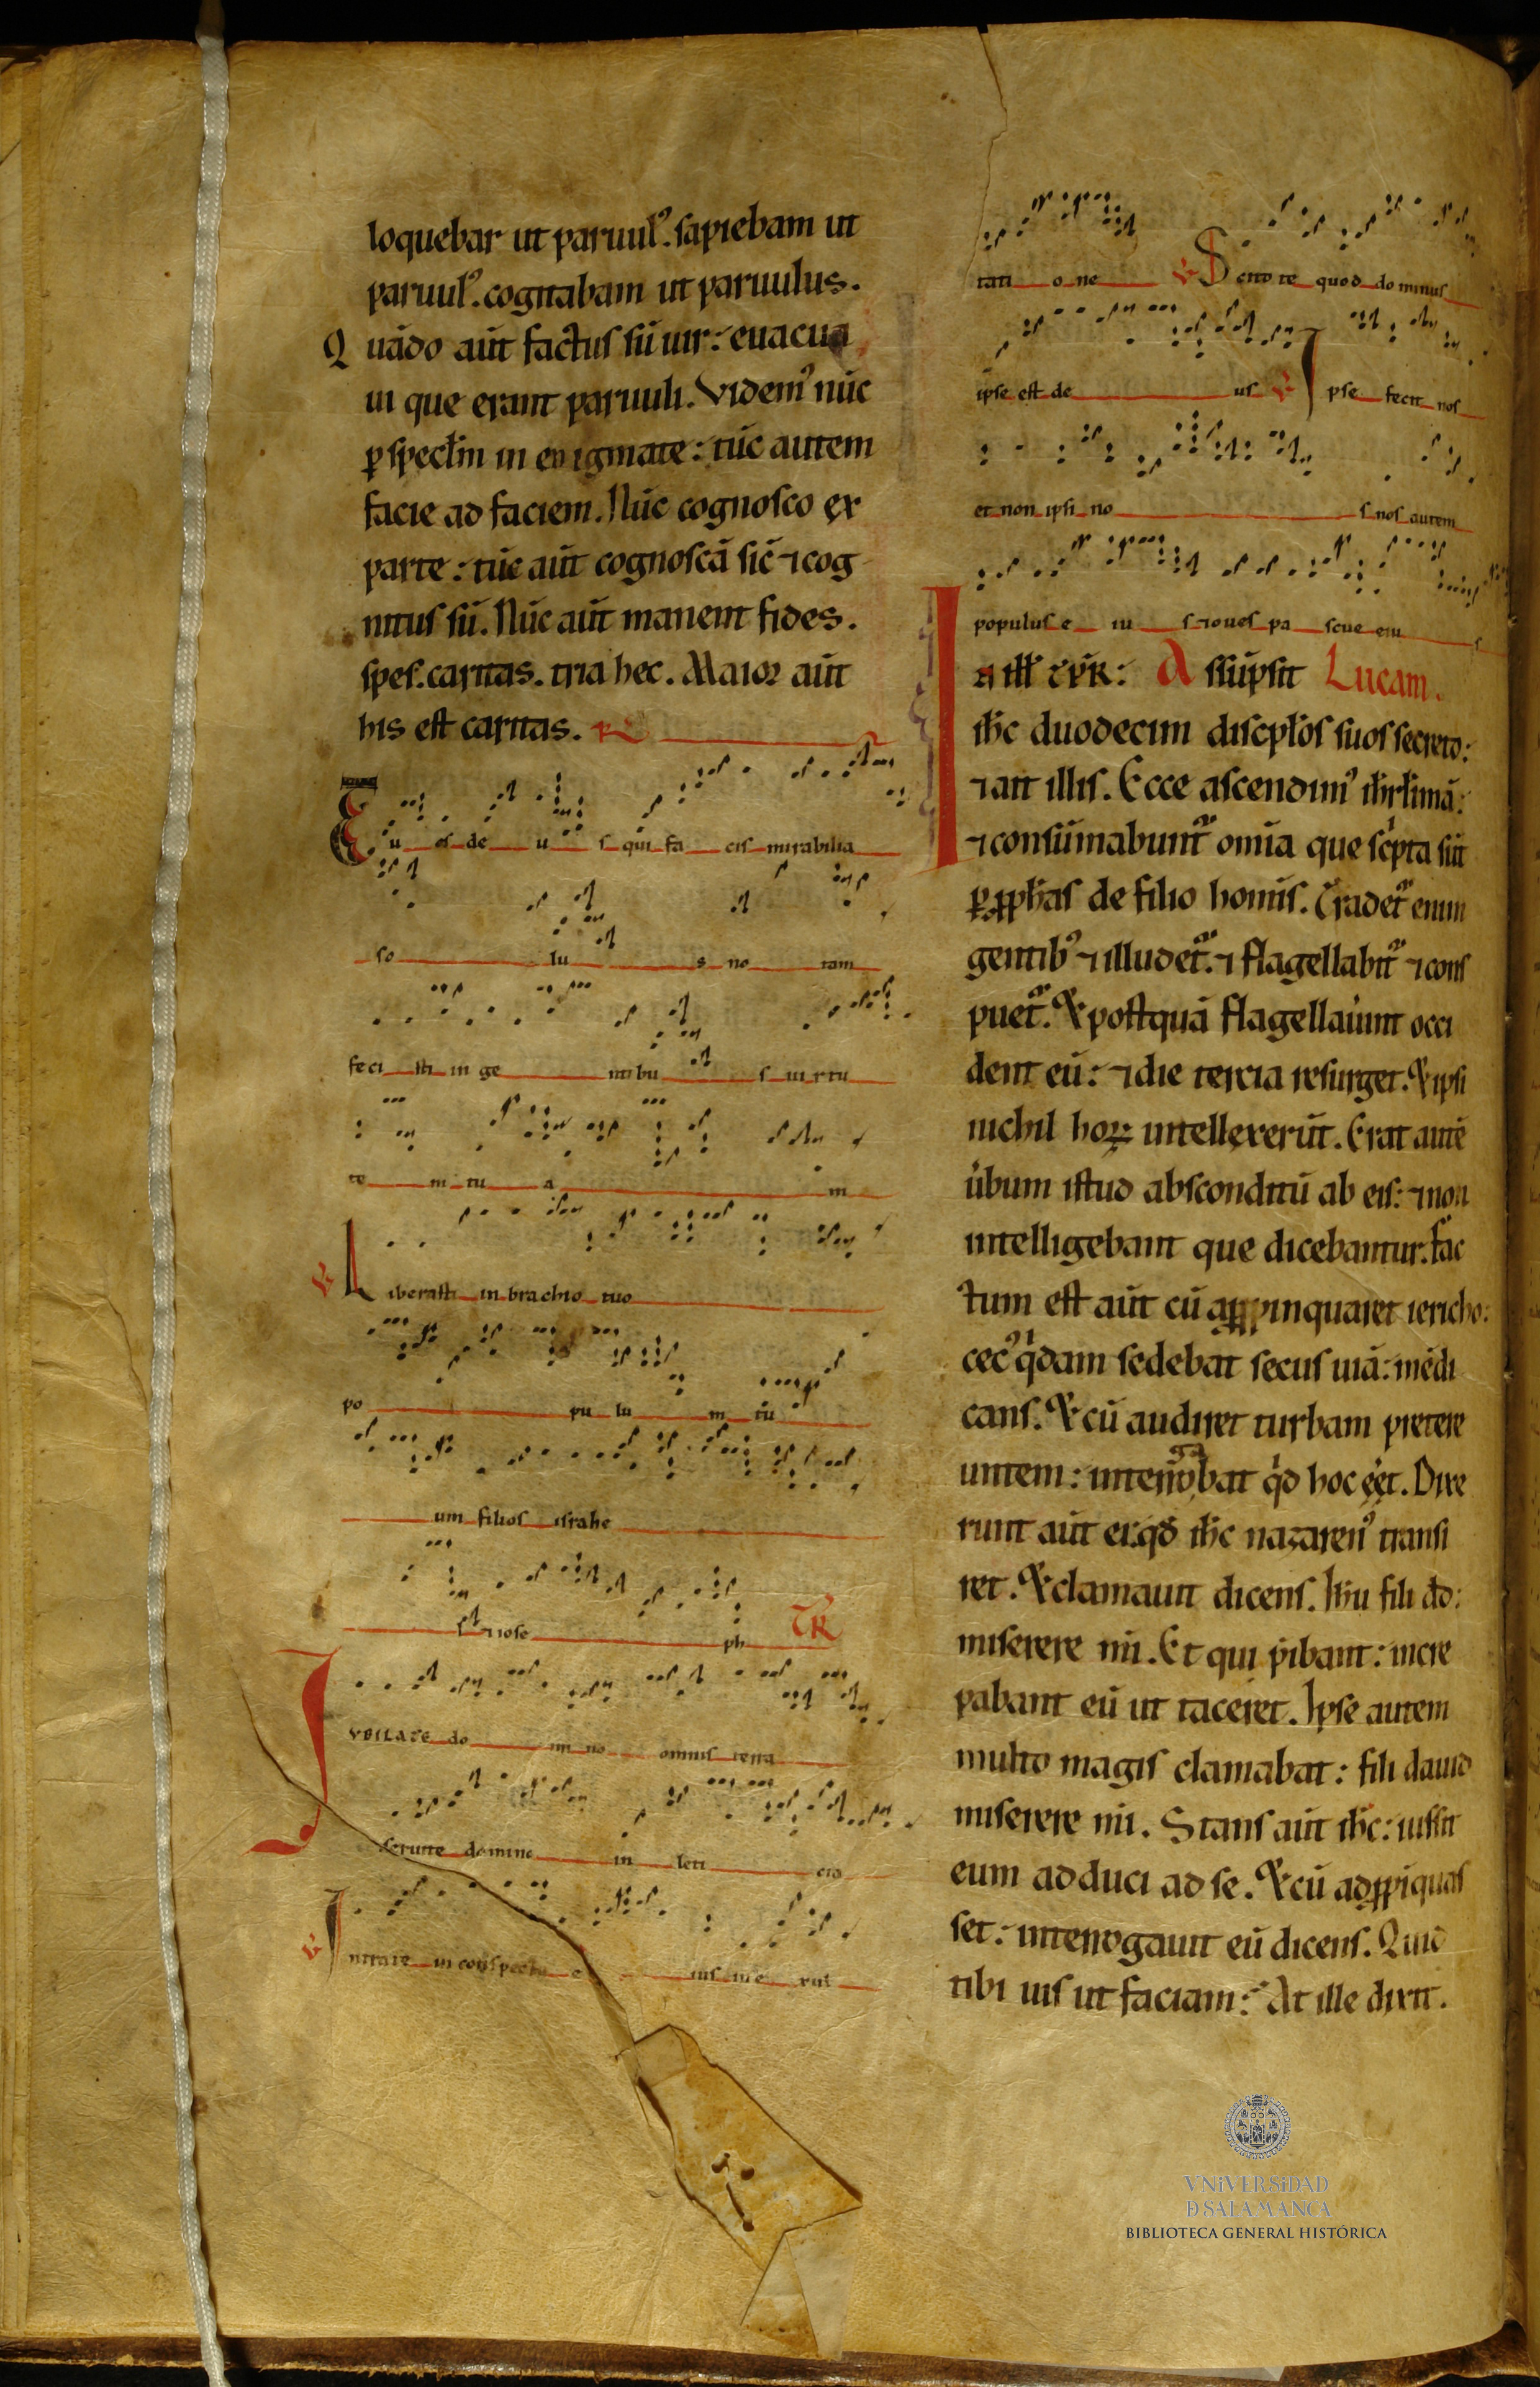 loquebar ut paruul᾽. sapiebam ut
paruul᾽. cogitabam ut paruulus.
Quãdo aũt factus sũ uir: euacua
ui que erant paruuli. Videm᾽ nũc
ꝑ specłm in enigmate: tũc autem
facie ad faciem. Nũc cognosco ex
parte: tũc aũt cognoscã sic̃ ⁊ cog
nitus sũ. Nũc aũt manent fides.
spes. caritas. tria hec. Maior aũt
his est caritas. R
Tu es de u s qui fa cis mirabilia
so lu s no tam
feci sti in ge nti bu s uirtu
te m tu a m
V Liberasti in brachio tuo
po pu lu m tũ
um filios israhe
l ⁊ iose ph TR
IVBILATE do mi no omnis terra
seruite domino in leti cia
V Intrate in conspectu e ius in e xul
tati o ne V Scito te quod dominus
ipse est de us V Ipse fecit nos
et non ipsi no s nos autem
populus e iu s ⁊ oues pa scue eiu s
In ill̃ t̃p̃R: Assũpsit Lucam.
ih̃c duodecim discipłos suos secreto:
⁊ ait illis. Ecce ascendim᾽ ih̃rłimã:
⁊ consũmabunt᷑ om̃ia que sc̃pta sũt
ꝑ ꝓph̃as de filio hominis. Tradet᷑ enim
gentib᾽ ⁊ illudet᷑. ⁊ flagellabit᷑ ⁊ cons
puet᷑. Et postquã flagellau̾int occi
dent eũ: ⁊ die tercia resurget. Et ipsi
nichil hoꝝ intellexerũt. Erat autẽ
u̾bum istud absconditũ ab eis: ⁊ non
intelligebant que dicebantur. Fac
tum est aũt cũ aꝓpinquaret iericho:
cec᾽ q̾dam sedebat secus uiã: mẽdi
cans. Et cũ audiret turbam pretere
untem: interrogabat q̾d hoc ẽet. Dixe
runt aũt ei. qđ ih̃c nazaren᾽ transi
ret. Et clamauit dicens. Ih̃u fili dđ:
miserere m̃i. Et qui p̾ibant: incre
pabant eũ ut taceret. Ipse autem
multo magis clamabat: fili dauid
miserere m̃i. Stans aũt ih̃c: iussit
eum adduci ad se. Et cũ adꝓpĩquas
set: interrogauit eũ dicens. Quid
tibi uis ut faciam? At ille dixit.
VNiVERSiDAD
D SALAMANCA
BIBLIOTECA GENERAL HISTÓRICA